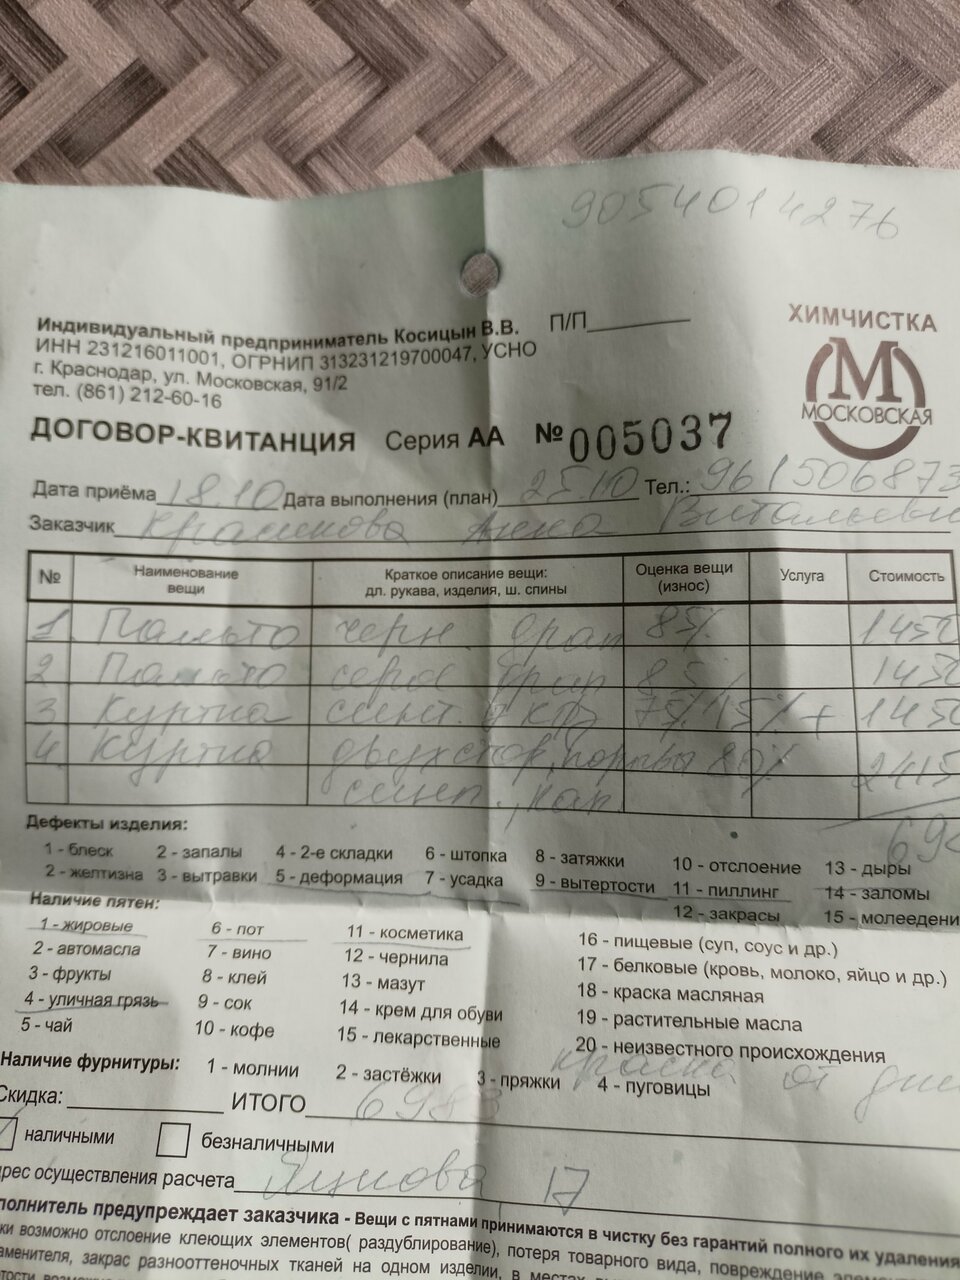 9054014276
Индивидуальный предприниматель Косицын В.В. П/П
ИНН 231216011001, ОГРНИП 313231219700047, УСНО
г. Краснодар, ул. Московская, 91/2
тел. (861) 212-60-16
ХИМЧИСТКА
М
МОСКОВСКАЯ
ДОГОВОР-КВИТАНЦИЯ Серия АА № 005037
Дата приёма 18.10 Дата выполнения (план) 25.10 Тел.: 961506873
Заказчик Красикова Анна Витальевн
№ Наименование вещи Краткое описание вещи: дл. рукава, изделия, ш. спины Оценка вещи (износ) Услуга Стоимость
1. Пальто черн. драп 85% 1450
2 Пальто серое драп 85% 1450
3 Куртка синт. 75% 15% + 1450
4. Куртка двухстор. 80% 2415
синт. кап.
69
Дефекты изделия:
1 - блеск 2 - запалы 4 - 2-е складки 6 - штопка 8 - затяжки 10 - отслоение 13 - дыры
2 - желтизна 3 - вытравки 5 - деформация 7 - усадка 9 - вытертости 11 - пиллинг 14 - заломы
12 - закрасы 15 - молеедени
Наличие пятен:
1 - жировые 6 - пот 11 - косметика 16 - пищевые (суп, соус и др.)
2 - автомасла 7 - вино 12 - чернила 17 - белковые (кровь, молоко, яйцо и др.)
3 - фрукты 8 - клей 13 - мазут 18 - краска масляная
4 - уличная грязь 9 - сок 14 - крем для обуви 19 - растительные масла
5 - чай 10 - кофе 15 - лекарственные 20 - неизвестного происхождения
краска от
Наличие фурнитуры: 1 - молнии 2 - застёжки 3 - пряжки 4 - пуговицы
Скидка: ИТОГО 6983
наличными безналичными
рес осуществления расчета 17
полнитель предупреждает заказчика - Вещи с пятнами принимаются в чистку без гарантий полного их удаления
ки возможно отслоение клеющих элементов( раздублирование), потеря товарного вида, повреждение
аменителя, закрас разнооттеночных тканей на одном изделии, в местах